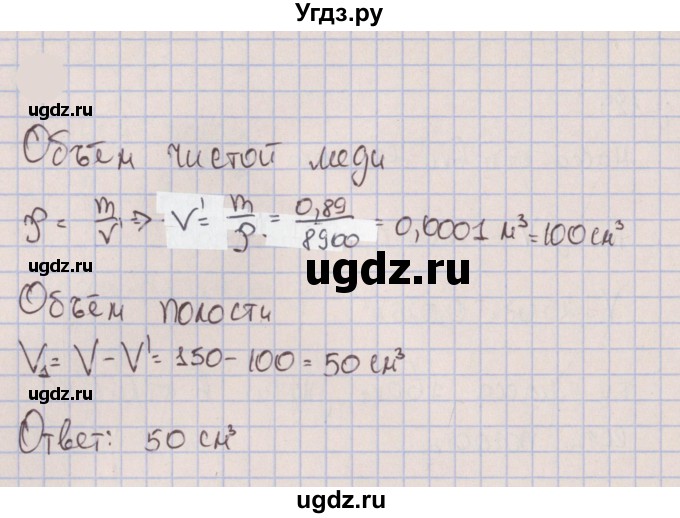 Угдз.ру
ugdz.ru ugdz.ru
Объём чистой меди
ρ = m/V' => V' = m/ρ = 0,89/8900 = 0,0001 м³ = 100 см³
ugdz.ru
ugdz.ru
Объём полости
V₁ = V - V' = 150 - 100 = 50 см³
ugdz.ru
Ответ: 50 см³
ugdz.ru
ugdz.ru